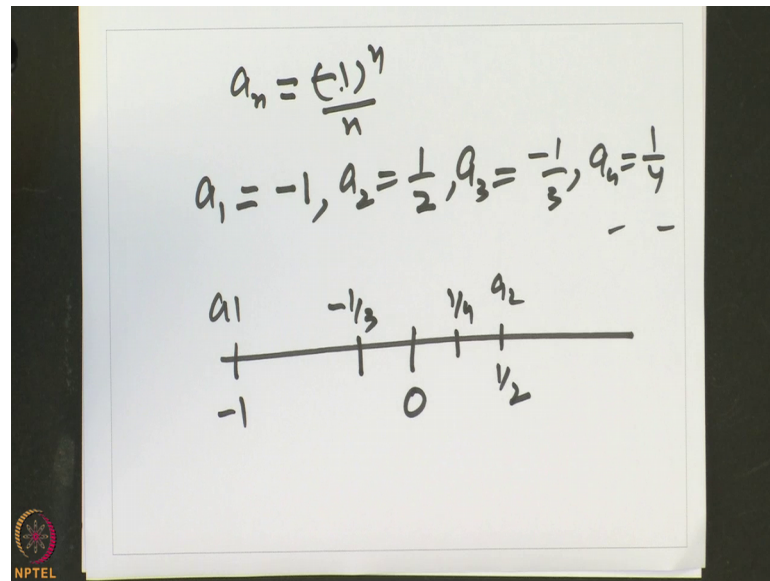 aₙ = (-1)ⁿ/n
a₁ = -1, a₂ = 1/2, a₃ = -1/3, a₄ = 1/4
- -
a1 -1/3 1/4 a₂
-1 0 1/2
NPTEL